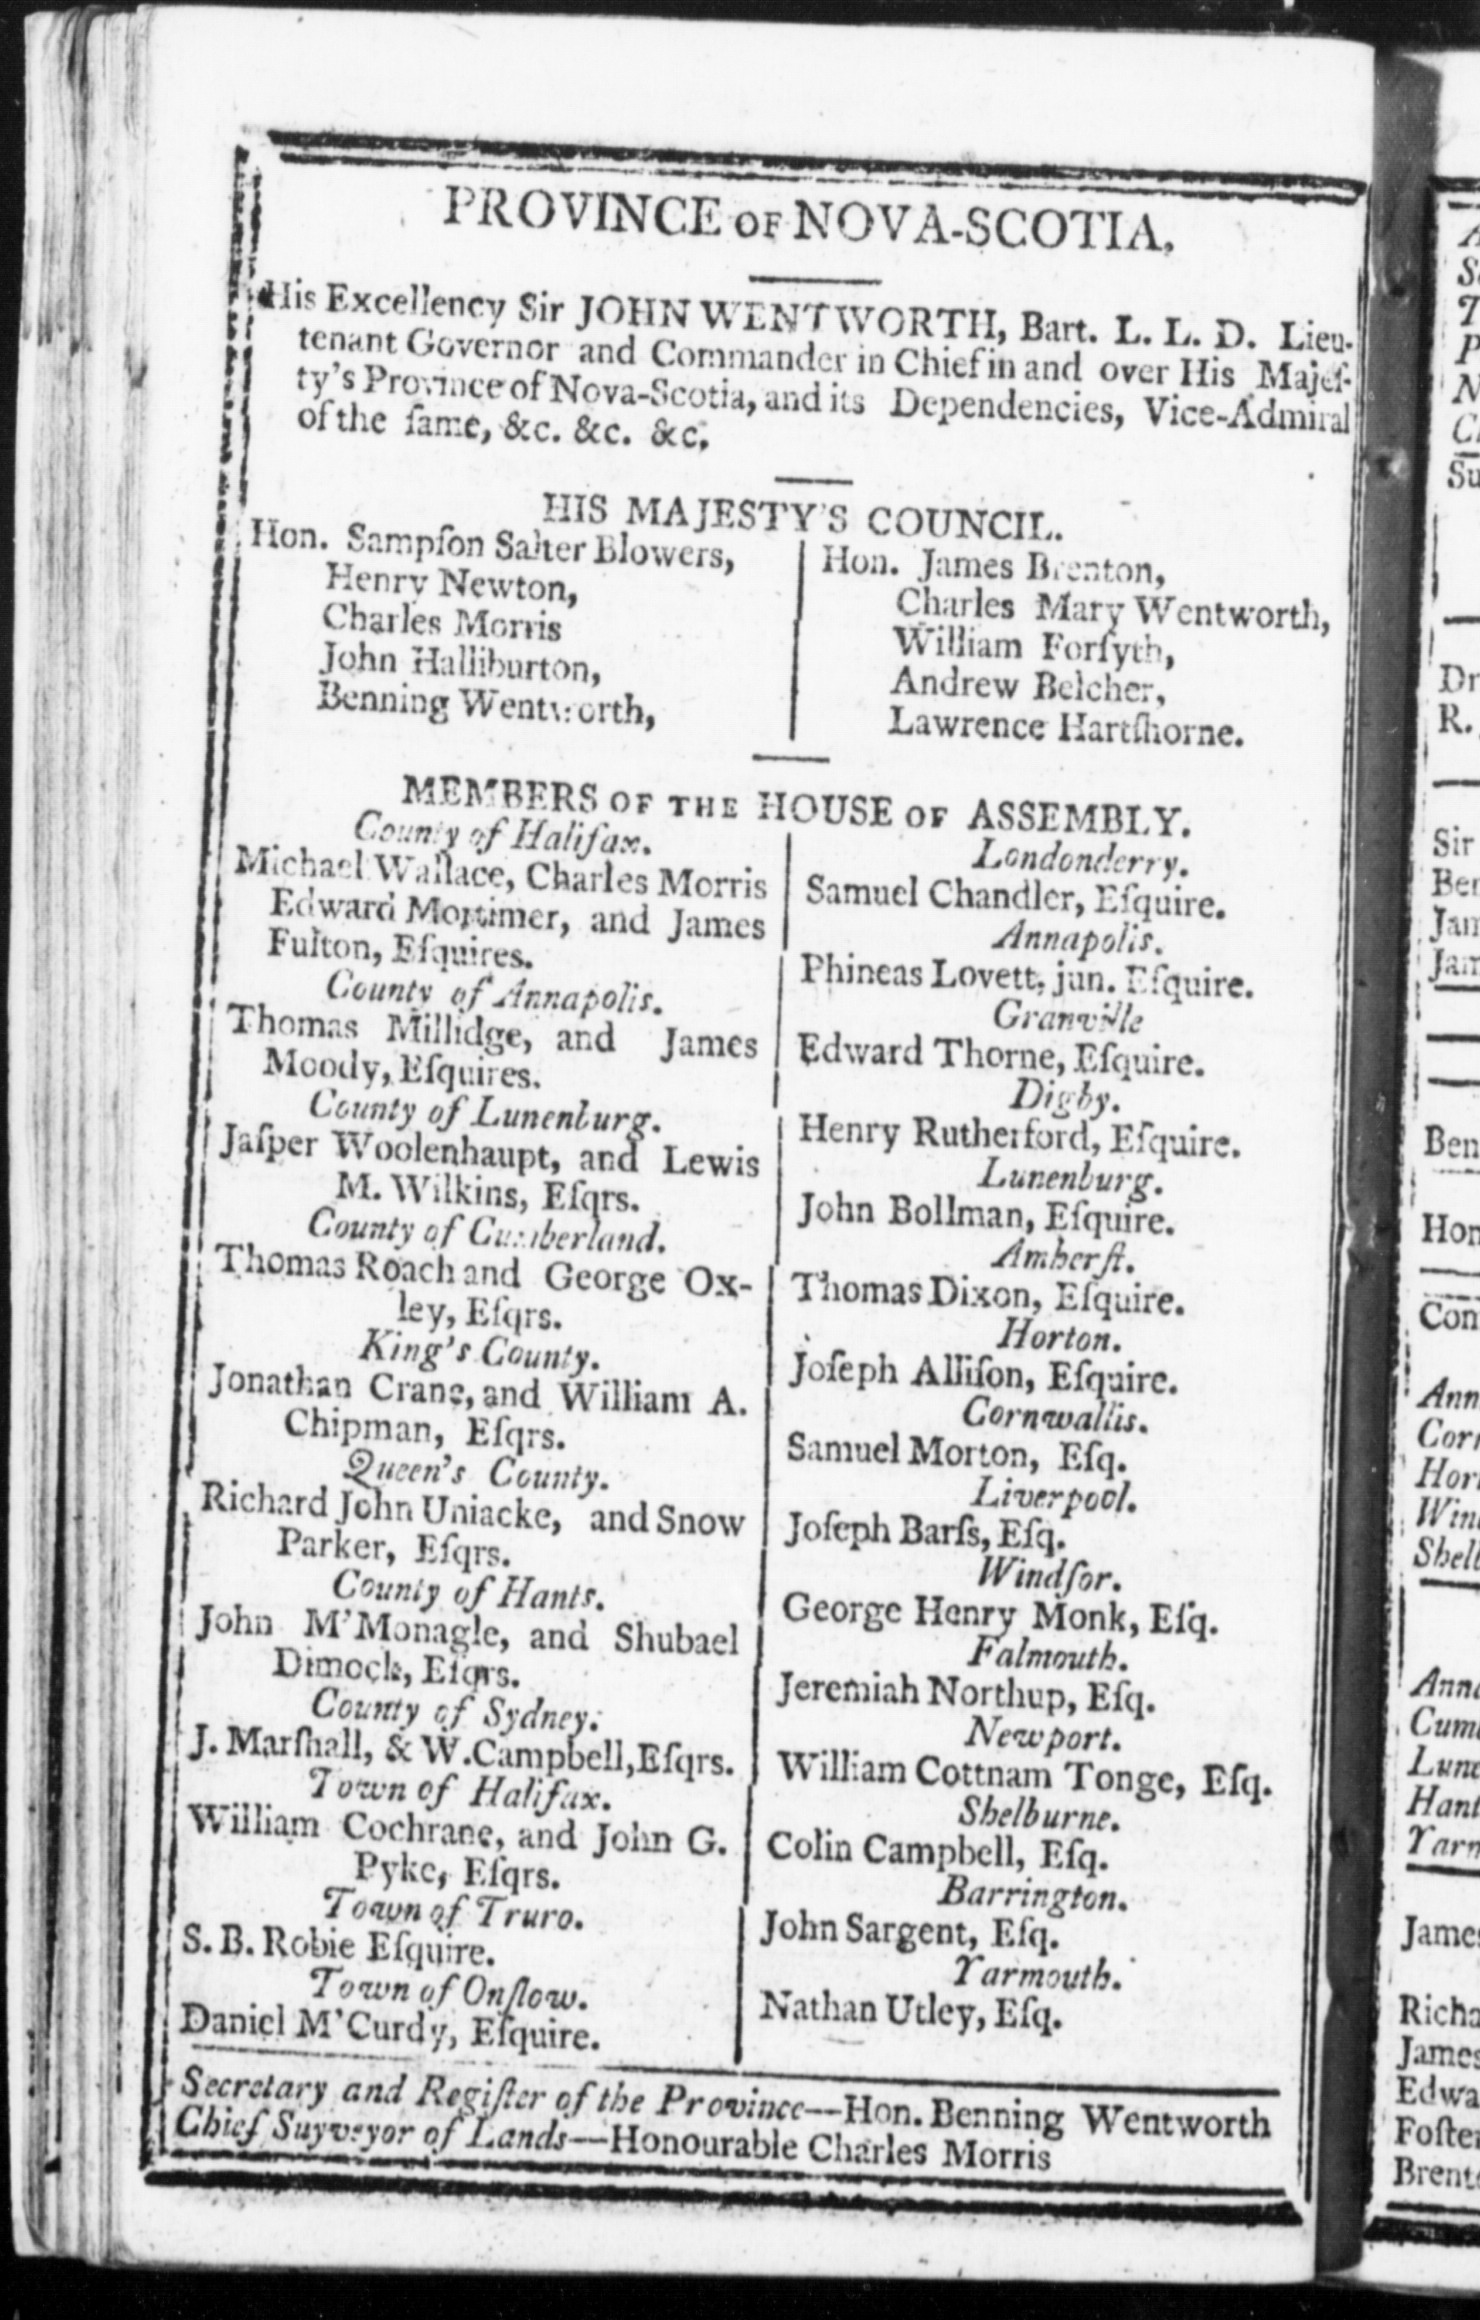 PROVINCE OF NOVA-SCOTIA,
His Excellency Sir JOHN WENTWORTH, Bart. L. L. D. Lieu-
tenant Governor and Commander in Chief in and over His Majeſ-
ty's Province of Nova-Scotia, and its Dependencies, Vice-Admiral
of the ſame, &c. &c. &c.
HIS MAJESTY'S COUNCIL.
Hon. Sampſon Salter Blowers,
Henry Newton,
Charles Morris
John Halliburton,
Benning Wentworth,
Hon. James Brenton,
Charles Mary Wentworth,
William Forſyth,
Andrew Belcher,
Lawrence Hartſhorne.
MEMBERS OF THE HOUSE OF ASSEMBLY.
County of Halifax.
Michael Wallace, Charles Morris
Edward Mortimer, and James
Fulton, Eſquires.
County of Annapolis.
Thomas Millidge, and James
Moody, Eſquires.
County of Lunenburg.
Jaſper Woolenhaupt, and Lewis
M. Wilkins, Eſqrs.
County of Cumberland.
Thomas Roach and George Ox-
ley, Eſqrs.
King's County.
Jonathan Crane, and William A.
Chipman, Eſqrs.
Queen's County.
Richard John Uniacke, and Snow
Parker, Eſqrs.
County of Hants.
John M'Monagle, and Shubael
Dimock, Eſqrs.
County of Sydney.
J. Marſhall, & W. Campbell, Eſqrs.
Town of Halifax.
William Cochrane, and John G.
Pyke, Eſqrs.
Town of Truro.
S. B. Robie Eſquire.
Town of Onſlow.
Daniel M'Curdy, Eſquire.
Londonderry.
Samuel Chandler, Eſquire.
Annapolis.
Phineas Lovett, jun. Eſquire.
Granville
Edward Thorne, Eſquire.
Digby.
Henry Rutherford, Eſquire.
Lunenburg.
John Bollman, Eſquire.
Amherſt.
Thomas Dixon, Eſquire.
Horton.
Joſeph Alliſon, Eſquire.
Cornwallis.
Samuel Morton, Eſq.
Liverpool.
Joſeph Barſs, Eſq.
Windſor.
George Henry Monk, Eſq.
Falmouth.
Jeremiah Northup, Eſq.
Newport.
William Cottnam Tonge, Eſq.
Shelburne.
Colin Campbell, Eſq.
Barrington.
John Sargent, Eſq.
Yarmouth.
Nathan Utley, Eſq.
Secretary and Regiſter of the Province—Hon. Benning Wentworth
Chief Suyveyor of Lands—Honourable Charles Morris
Dr
R.
Sir
Ben
Hon
Con
Ann
Corn
Hor
Win
Shelb
Anna
Cum
Lune
Hant
Yarm
James
Richa
James
Edwa
Foſter
Brent